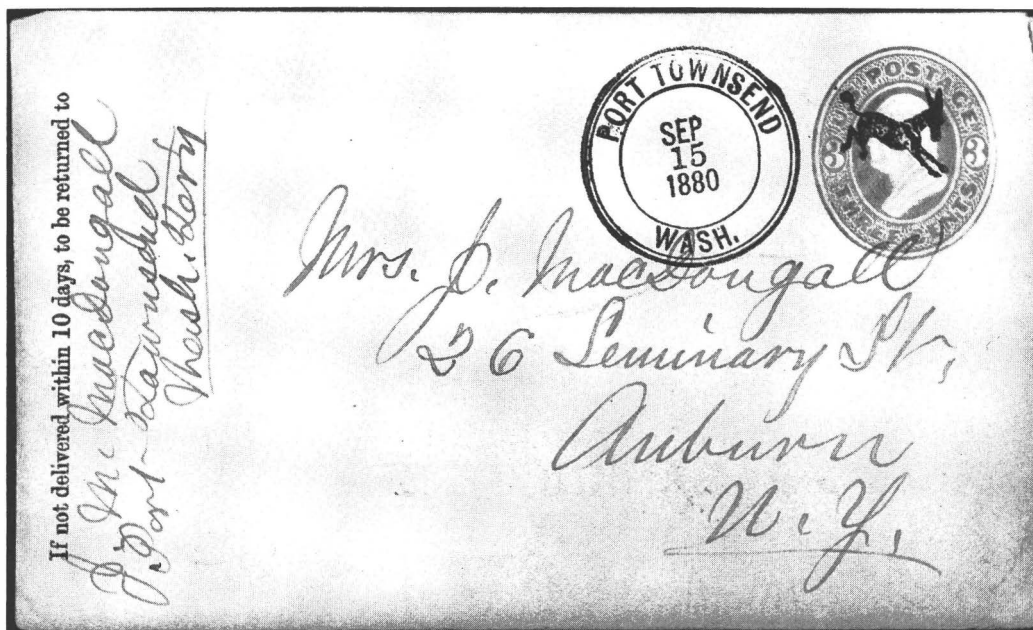 If not delivered within 10 days, to be returned to
J. M. MacDougall
Port Townsend
Wash. Terry
PORT TOWNSEND
SEP
15
1880
WASH.
U.S. POSTAGE
3 3
THREE CENTS
Mrs. J. MacDougall
26 Seminary St,
Auburn
N.Y.